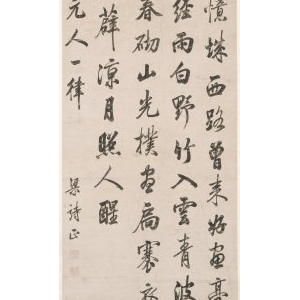 憶姝西路曾来好畫亭
經雨白野竹入雲青波
春砌山光撲畫扃褰衣
薜涼月照人醒
元人一律
梁詩正